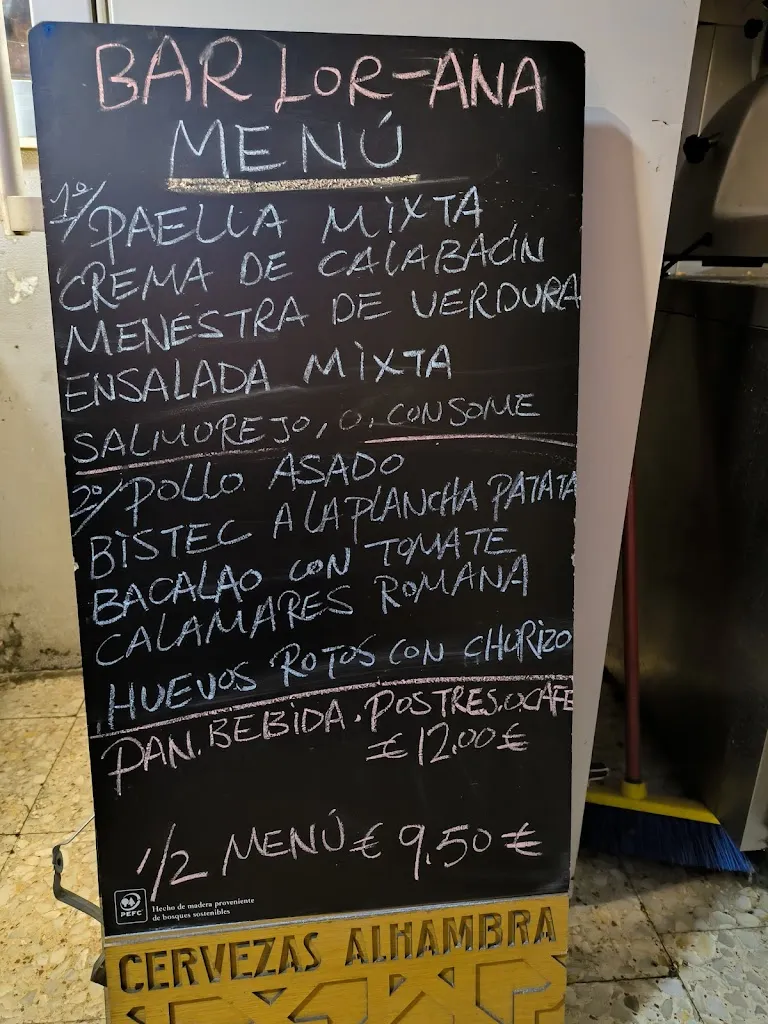 BAR LOR-ANA
MENÚ
1º/ PAELLA MIXTA
CREMA DE CALABACÍN
MENESTRA DE VERDURA
ENSALADA MIXTA
SALMOREJO, O, CONSOME
2º/ POLLO ASADO
BISTEC A LA PLANCHA PATATA
BACALAO CON TOMATE
CALAMARES ROMANA
HUEVOS ROTOS CON CHORIZO
PAN. BEBIDA. POSTRES. O CAFE
€ 12.00 €
1/2 MENÚ € 9.50 €
PEFC
Hecho de madera proveniente
de bosques sostenibles
CERVEZAS ALHAMBRA